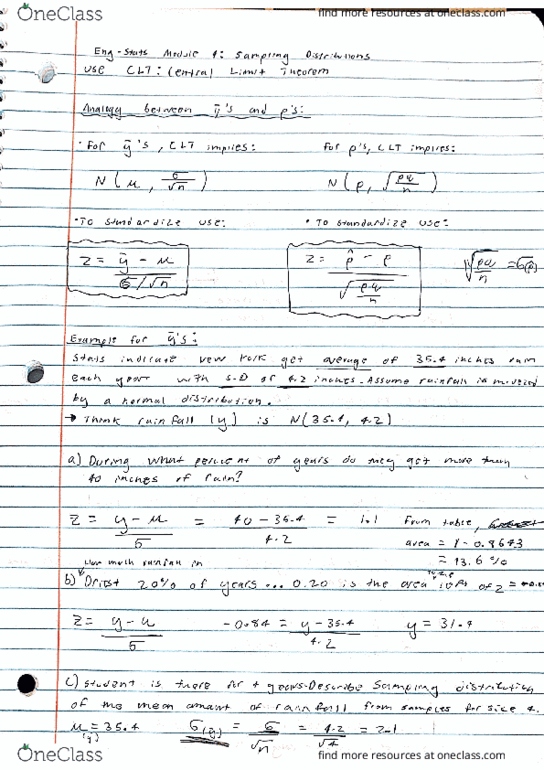 OneClass find more resources at oneclass.com
Eng-Stats Module 4: Sampling Distributions
USE CLT: Central Limit Theorem
Analogy between ȳ's and p's:
• For ȳ's, CLT implies: For p's, CLT implies:
N(μ, σ/√n) N(p, √(pq/n))
• To standardize use: • To standardize use:
z = (ȳ - μ)/(σ/√n) z = (p̂ - p)/√(pq/n) √(pq/n) = σ(p̂)
Example for ȳ's:
Stats indicate New York get average of 35.4 inches rain
each year with S.D of 4.2 inches. Assume rainfall is modeled
by a normal distribution.
→ Think rainfall (y) is N(35.4, 4.2)
a) During what percent of years do they get more than
40 inches of rain?
z = (y - μ)/σ = (40 - 35.4)/4.2 = 1.1 From table,
area = 1 - 0.8643
= 13.6%
How much rainfall in
b) Driest 20% of years... 0.20 is the area to the left of z = -0.84
z = (y - μ)/σ -0.84 = (y - 35.4)/4.2 y = 31.9
c) Student is there for 4 years. Describe Sampling distribution
of the mean amount of rainfall from samples for size 4.
μ(ȳ) = 35.4 σ(ȳ) = σ/√n = 4.2/√4 = 2.1
OneClass find more resources at oneclass.com